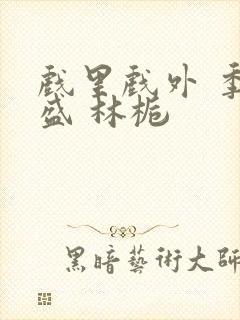 戲里戲外 季
盛 林栀
黑暗藝術大師